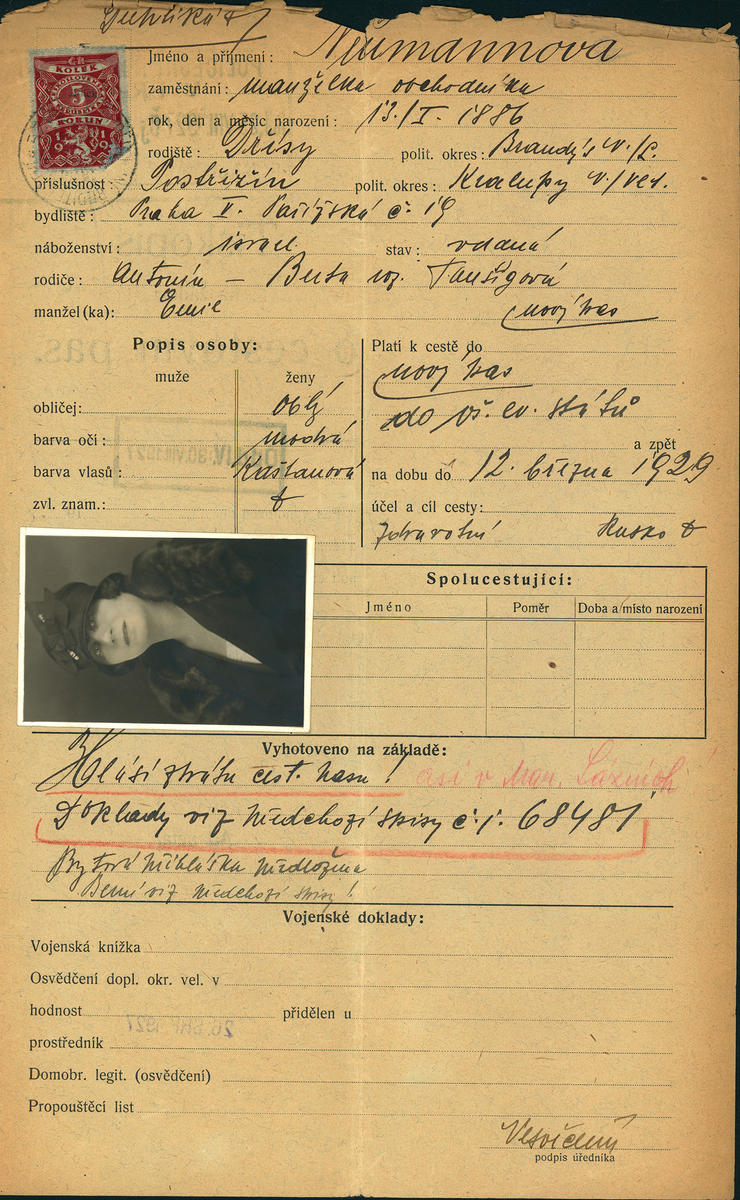 Duplikát
Jméno a příjmení: Neumannova
KOLEK
5
KORUN
zaměstnání: manželka obchodníka
rok, den a měsíc narození: 13./I. 1886
rodiště: Dřísy polit. okres: Brandýs n./L.
příslušnost: Postřižín polit. okres: Kralupy n./Vlt.
bydliště: Praha V. Pařížská č. 19
náboženství: israel. stav: vdaná
rodiče: Antonín – Berta roz. Taussigová
manžel(ka): Emil nový pas
Popis osoby: Platí k cestě do
muže ženy nový pas
obličej: oblý do vš. ev. států
barva očí: modrá a zpět
barva vlasů: Kaštanová na dobu do 12. března 1929
zvl. znam.: účel a cíl cesty:
Zdravotní Rusko
Spolucestující:
Jméno Poměr Doba a místo narození
Vyhotoveno na základě:
Hlásí ztrátu cest. pasu! asi v Mar. Lázních
Doklady viz předchozí spisy č.j. 68481
Bytová přihláška předložena
Berní viz předchozí spisy!
Vojenské doklady:
Vojenská knížka
Osvědčení dopl. okr. vel. v
hodnost přidělen u
prostředník
Domobr. legit. (osvědčení)
Propouštěcí list
podpis úředníka